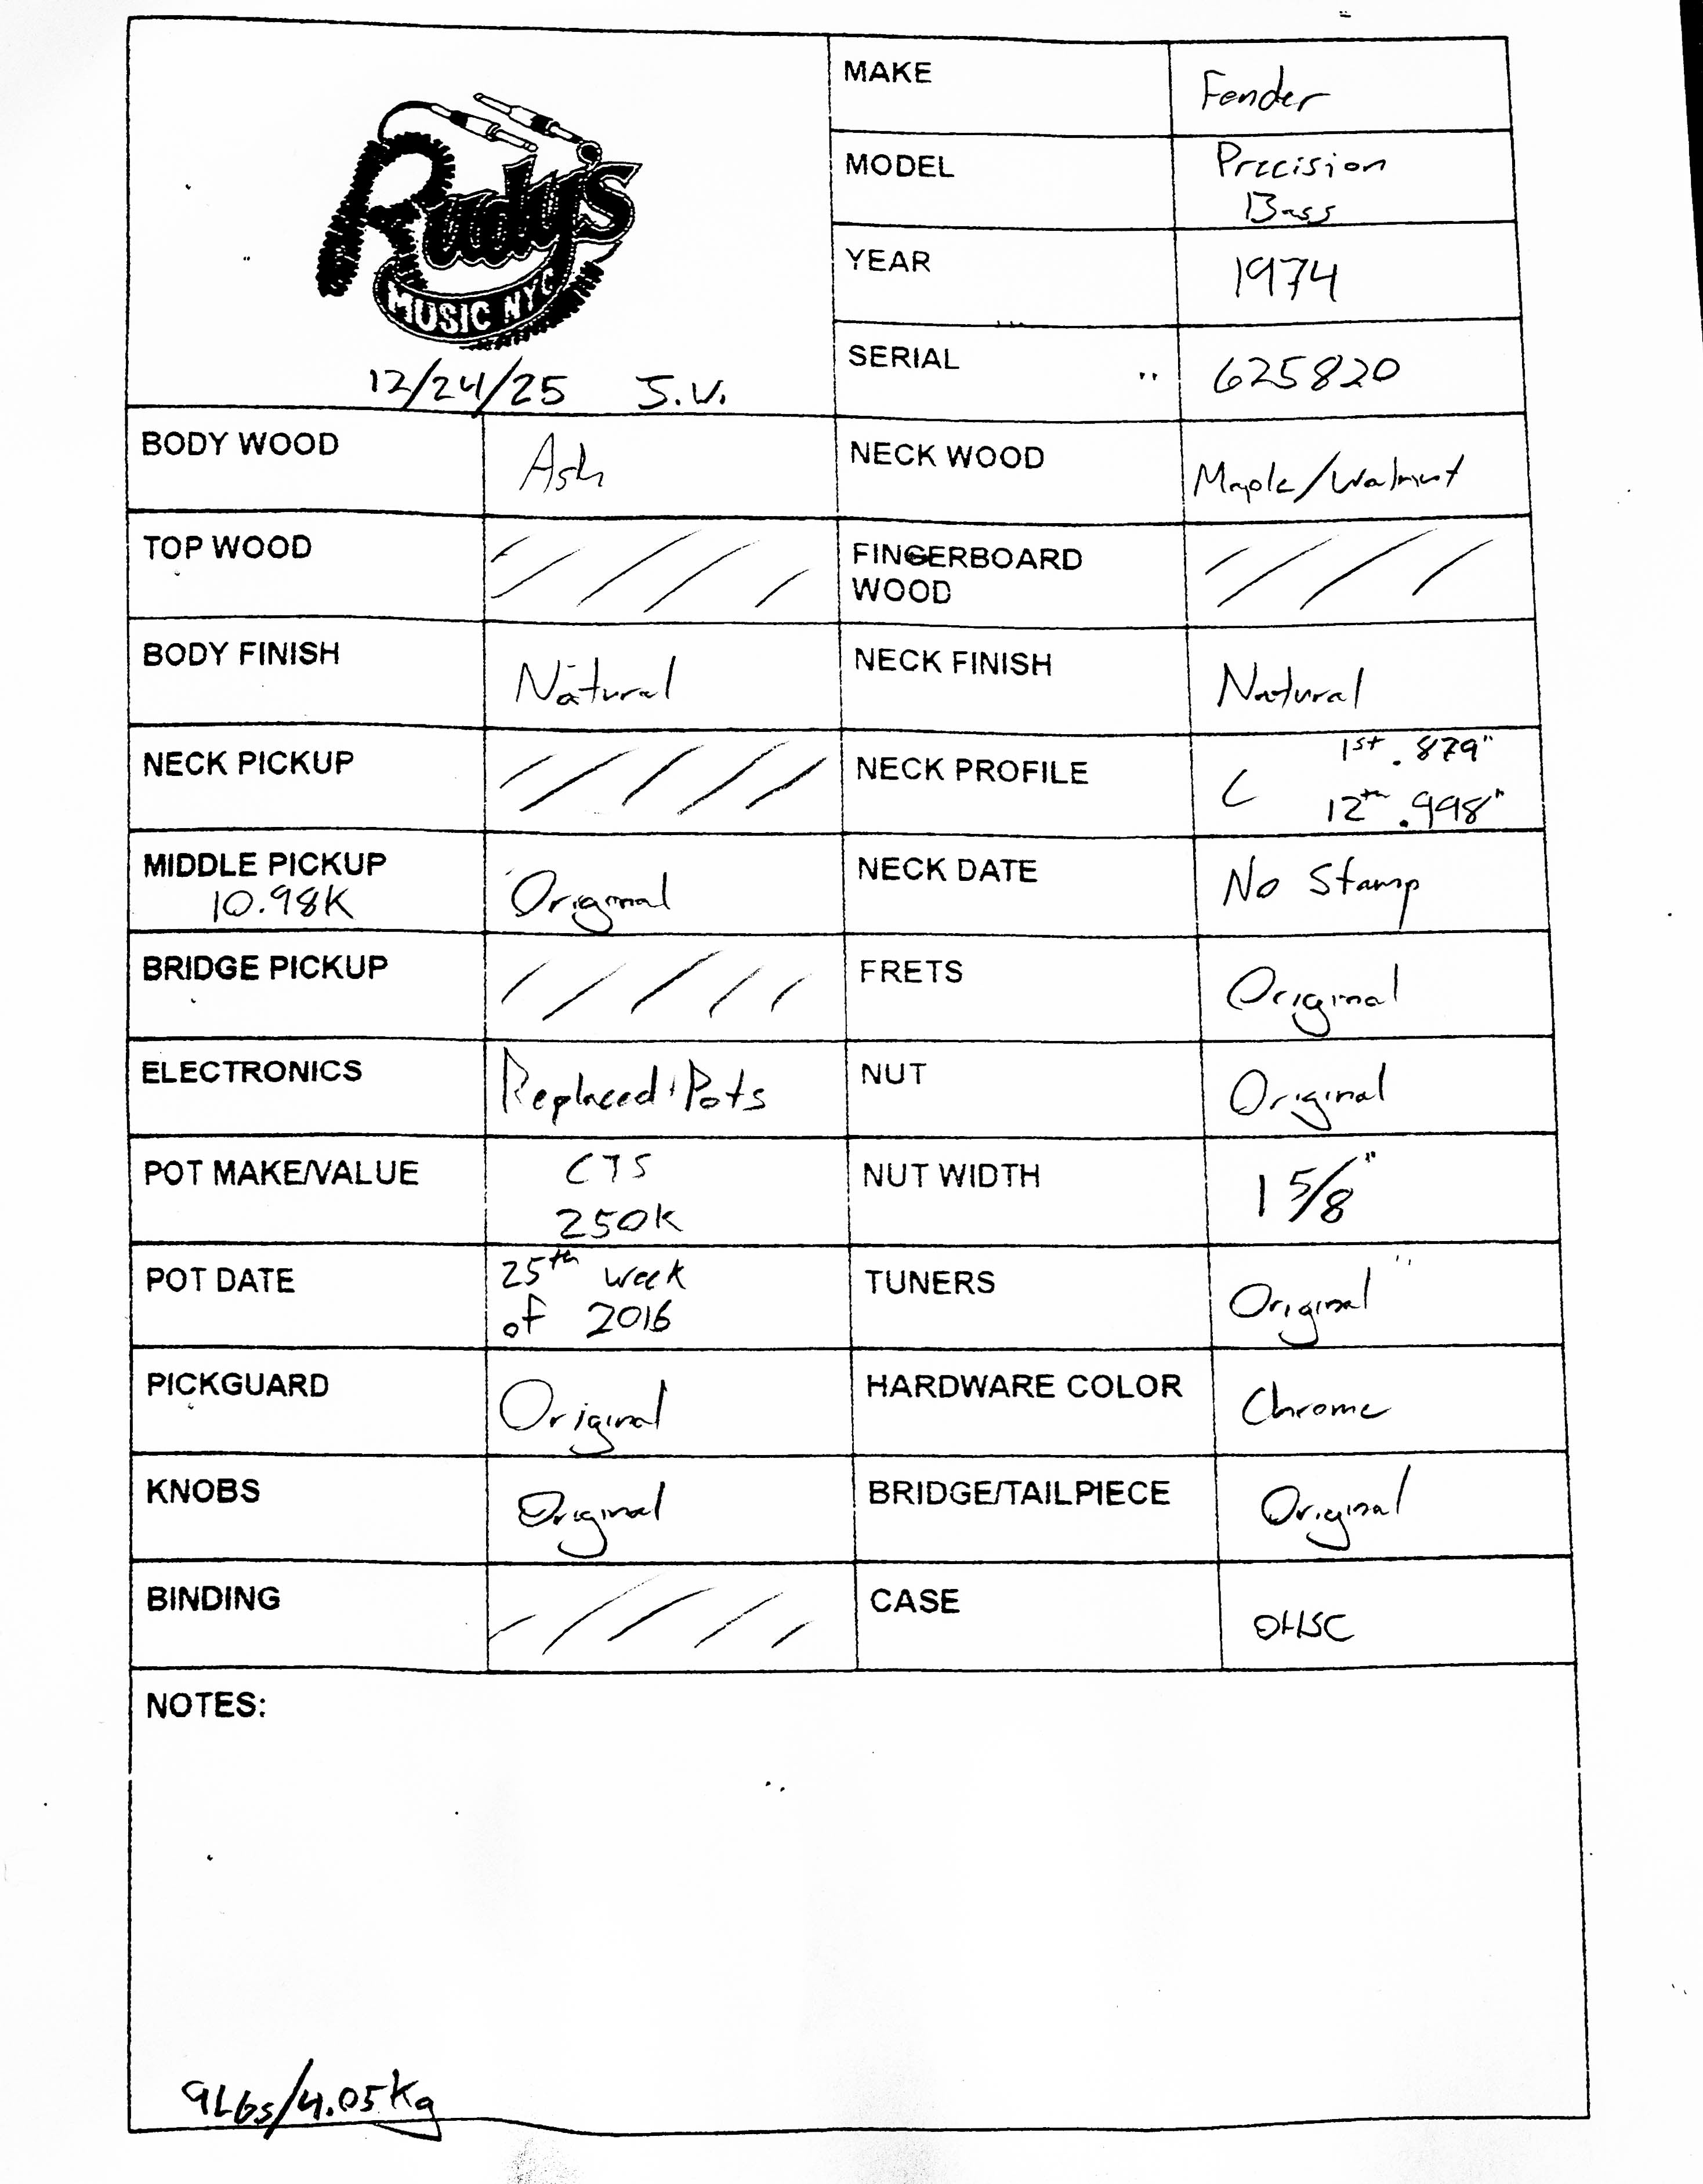 Rudy's
MUSIC NYC
12/24/25 J.V.
MAKE
Fender
MODEL
Precision
Bass
YEAR
1974
SERIAL
625820
BODY WOOD
Ash
NECK WOOD
Maple/Walnut
TOP WOOD
FINGERBOARD
WOOD
BODY FINISH
Natural
NECK FINISH
Natural
NECK PICKUP
NECK PROFILE
C
1st .879"
12th .998"
MIDDLE PICKUP
10.98K
Original
NECK DATE
No Stamp
BRIDGE PICKUP
FRETS
Original
ELECTRONICS
Replaced Pots
NUT
Original
POT MAKE/VALUE
CTS
250K
NUT WIDTH
1 5/8"
POT DATE
25th week
of 2016
TUNERS
Original
PICKGUARD
Original
HARDWARE COLOR
Chrome
KNOBS
Original
BRIDGE/TAILPIECE
Original
BINDING
CASE
OHSC
NOTES:
9Lbs/4.05Kg